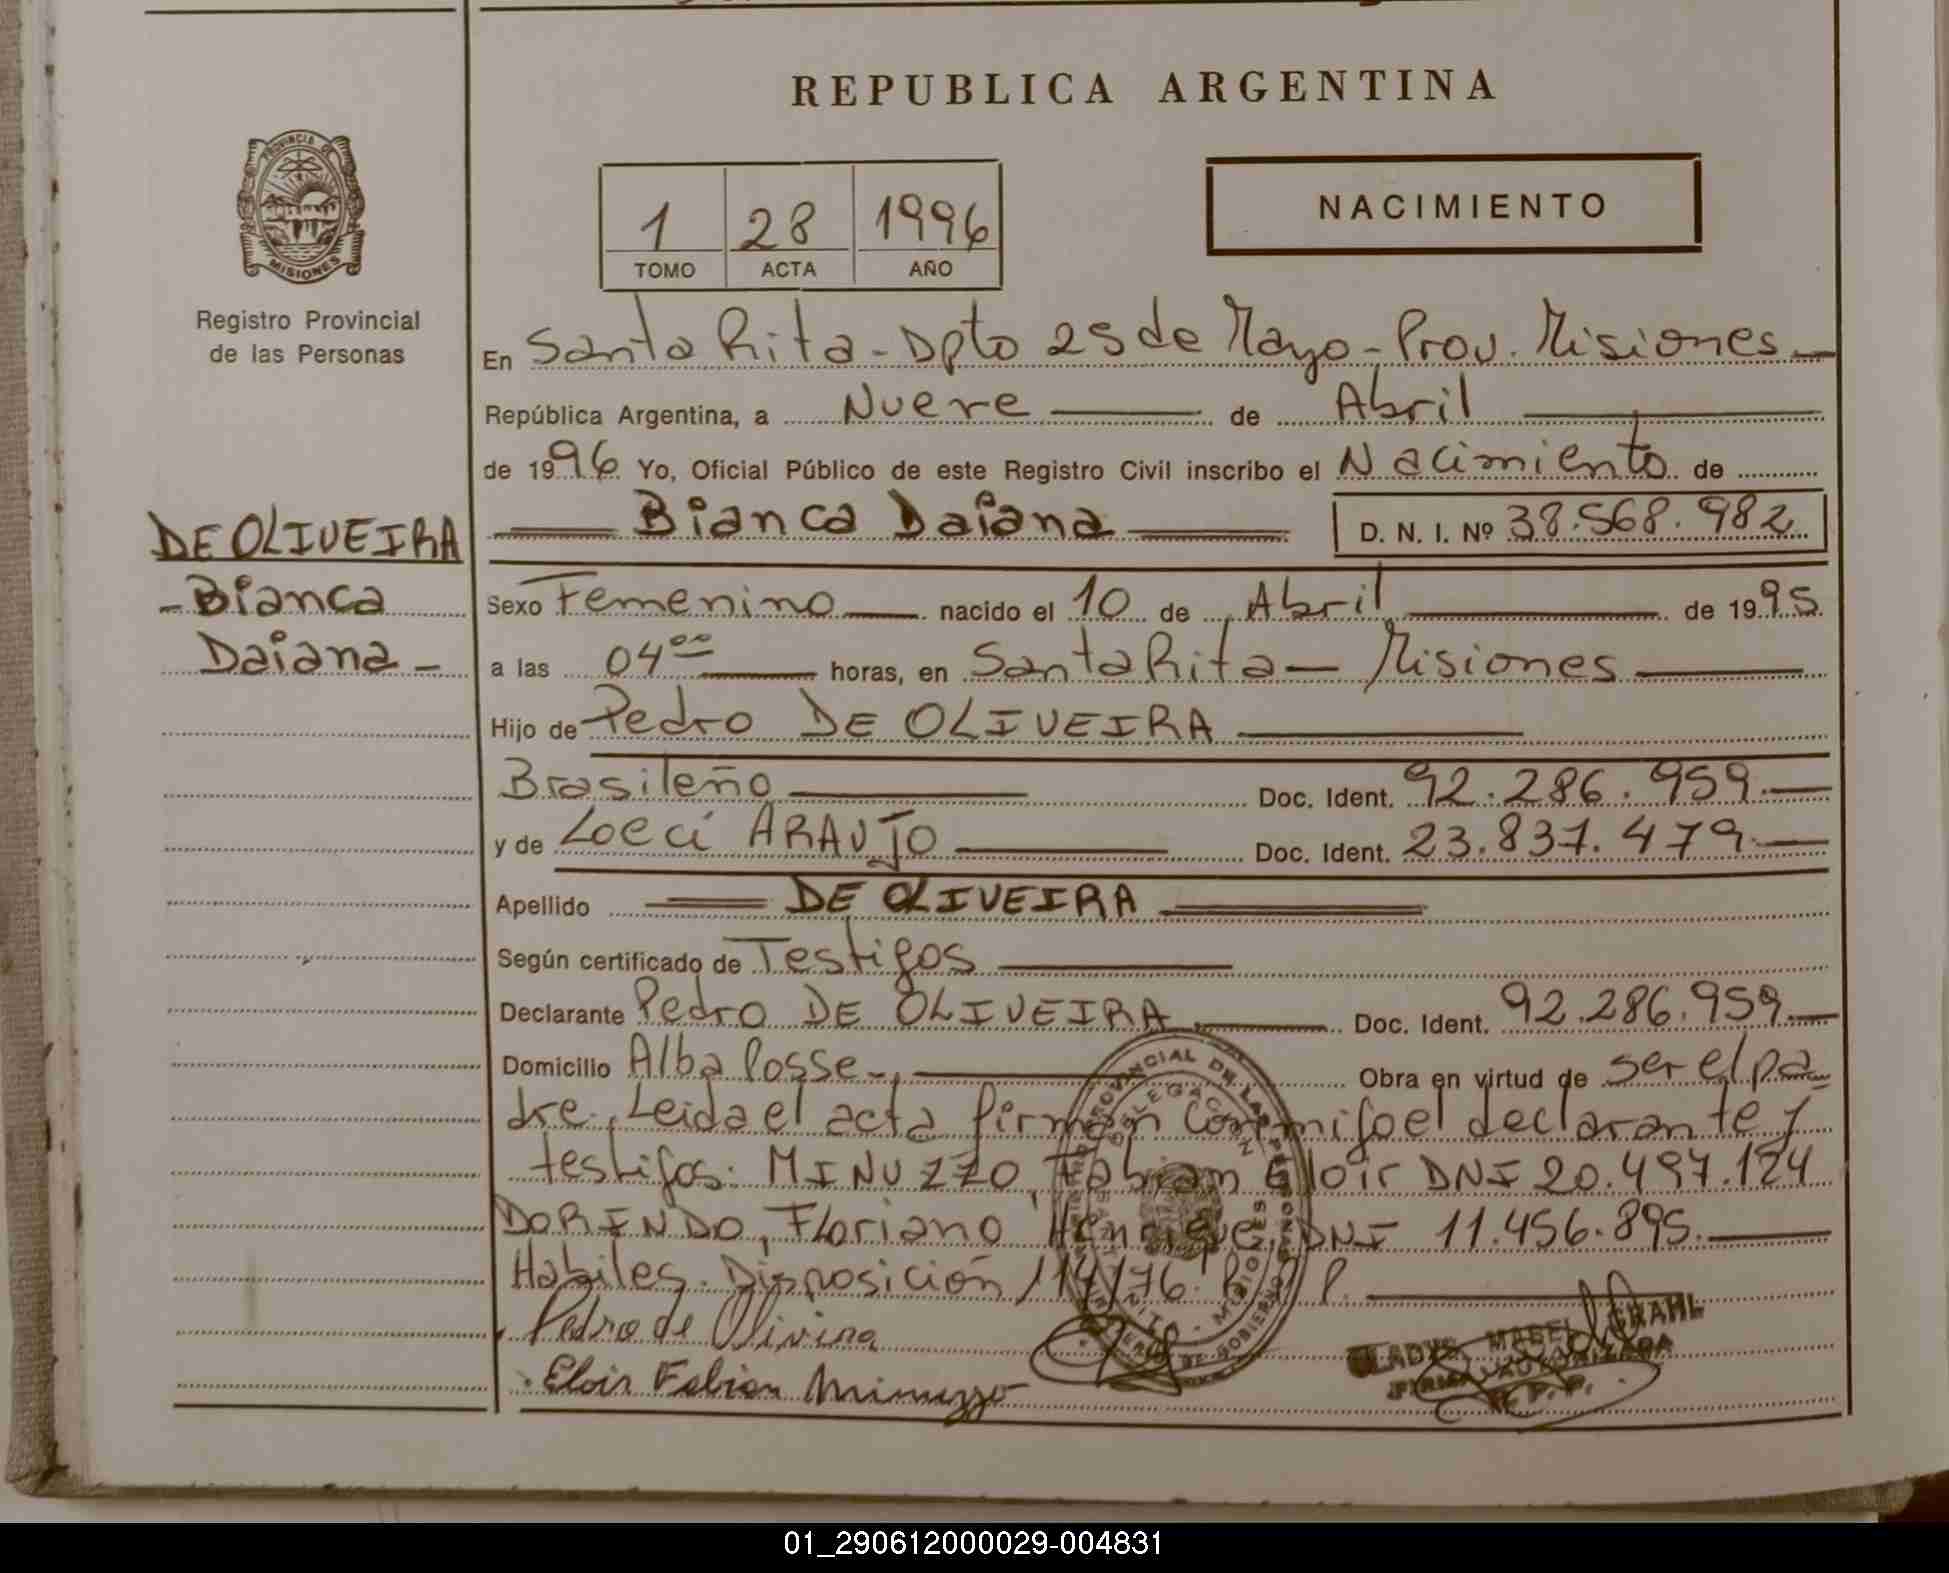 REPUBLICA ARGENTINA
PROVINCIA DE
MISIONES
Registro Provincial
de las Personas
1 28 1996
TOMO ACTA AÑO
NACIMIENTO
En Santa Rita - Dpto 25 de Mayo - Prov. Misiones
República Argentina, a Nueve de Abril
de 1996 Yo, Oficial Público de este Registro Civil inscribo el Nacimiento de
Bianca Daiana D. N. I. Nº 38.568.982
DE OLIVEIRA
- Bianca
Daiana -
Sexo Femenino nacido el 10 de Abril de 1995
a las 04 00 horas, en Santa Rita - Misiones
Hijo de Pedro DE OLIVEIRA
Brasileño Doc. Ident. 92.286.959.
y de Loeci ARAUJO Doc. Ident. 23.837.479.
Apellido DE OLIVEIRA
Según certificado de Testigos
Declarante Pedro DE OLIVEIRA Doc. Ident. 92.286.959.
Domicilio Alba Posse.- Obra en virtud de ser el pa-
dre. Leida el acta firman conmigo el declarante y
testigos: MINUZZO, Fabian Eloir DNI 20.497.124
DORINDO, Floriano Henrique DNI 11.456.895.
Habiles. Disposición 114/76. R. P. P.
Pedro de Olivira
Eloir Fabian Minuzzo
GLADYS MABEL GRAHL
FIRMA AUTORIZADA
R. P. P.
01_290612000029-004831